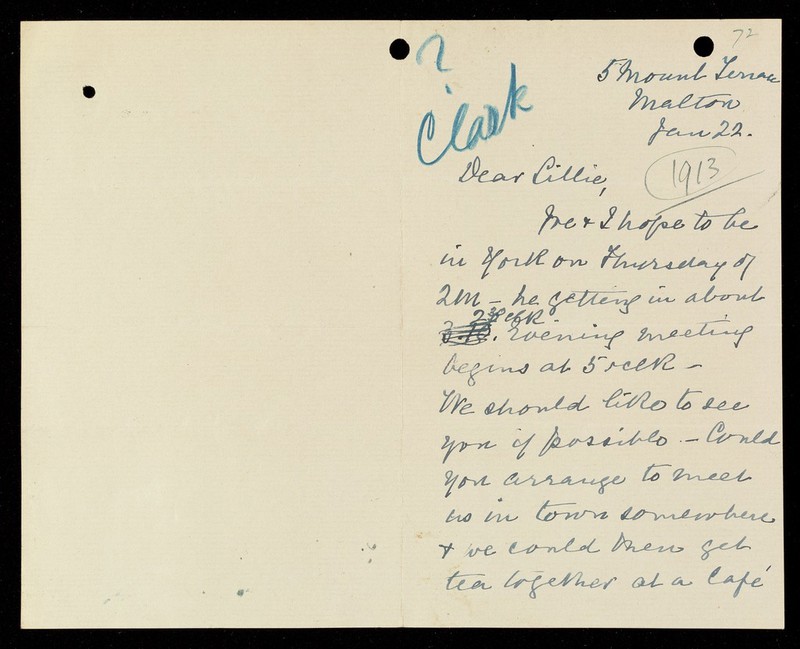 72
?
Clark
5 Mount Terrace
Malton
Jan 22.
1913
Dear Lillie,
& I hope to be
in York on Thursday of
2M - he getting in about
2 30 oclk
Evening meeting
begins at 5 oclk -
We should like to see
you if possible. - Could
you arrange to meet
us in town somewhere
& we could then get
tea together at a Café